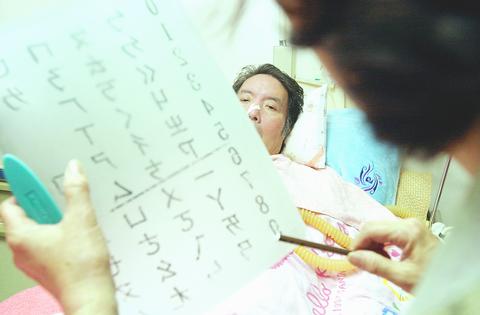 0 1 2 3 4 5 6 7 8 9
ㄅ ㄉ ㄍ ㄐ ㄓ ㄗ ㄧ ㄚ ㄞ ㄢ
ㄆ ㄊ ㄎ ㄑ ㄔ ㄘ ㄨ ㄛ ㄟ
ㄇ ㄋ ㄏ ㄒ ㄕ ㄙ ㄩ ㄜ ㄠ ㄤ
ㄈ ㄌ